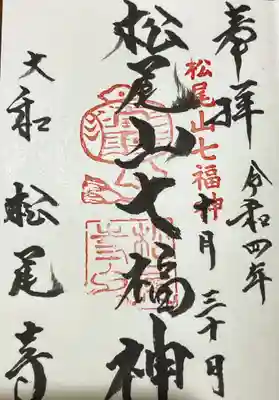 奉拝
令和四年
松尾山七福神
十月三十日
松尾山七福神
大和松尾寺